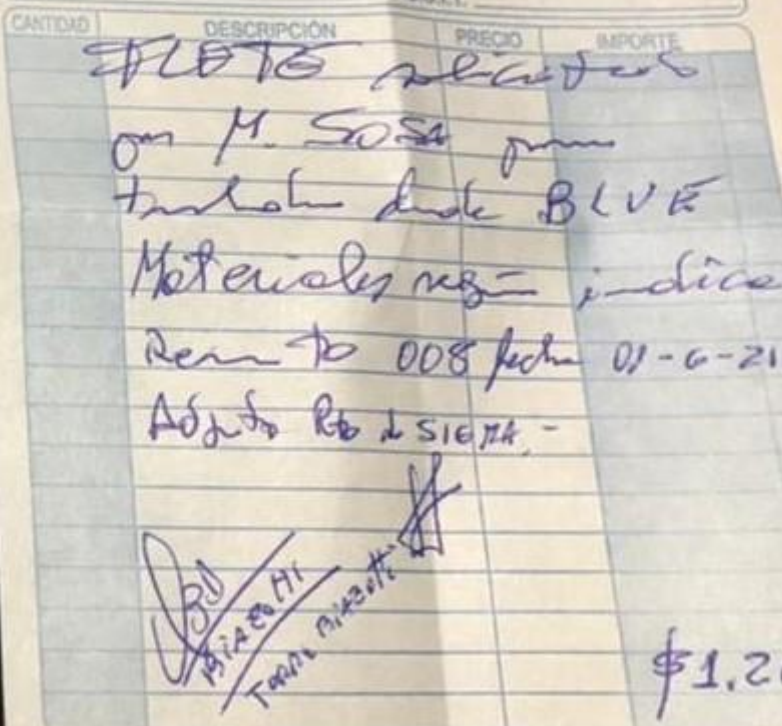 CANTIDAD DESCRIPCIÓN PRECIO IMPORTE
FLETE solicitado
por M. SOSA para
traslado desde BLUE
Materiales según indica
Remito 008 fecha 01-6-21
Adjunto Rto de SIGMA.-
BIAZOTTI
BIAZOTTI
$1.2